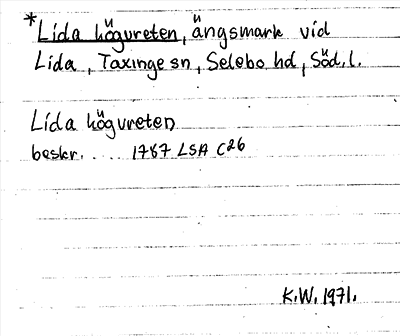 *Lida högvreten, ängsmark vid
Lida, Taxinge sn, Selebo hd, Söd. l.
Lida högvreten
beskr. .... 1767 LSA C26
K.W. 1971.